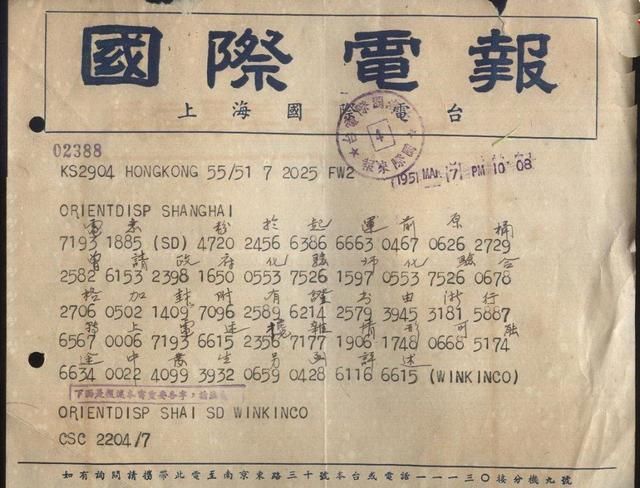 國際電報
上海國際電台
02388
KS2904 HONGKONG 55/51 7 2025 FW2
1951 MAR (7) PM 10 08
4
ORIENTDISP SHANGHAI
電悉 粉於起運前原桶
7193 1885 (SD) 4720 2456 6386 6663 0467 0626 2729
曾請政府化驗師化驗合
2582 6153 2398 1650 0553 7526 1597 0553 7526 0678
格加封附有證書由浙行
2706 0502 1409 7096 2589 6214 2579 3945 3181 5887
上電述攙雜情形可能
6567 0006 7193 6615 2356 7177 1906 1748 0668 5174
途中發生另函詳述
6634 0022 4099 3932 0659 0428 6116 6615 (WINKINCO)
ORIENTDISP SHAI SD WINKINCO
CSC 2204/7
如有詢問請攜帶此電至南京東路三十號本台或電話一一一三〇接分機九號